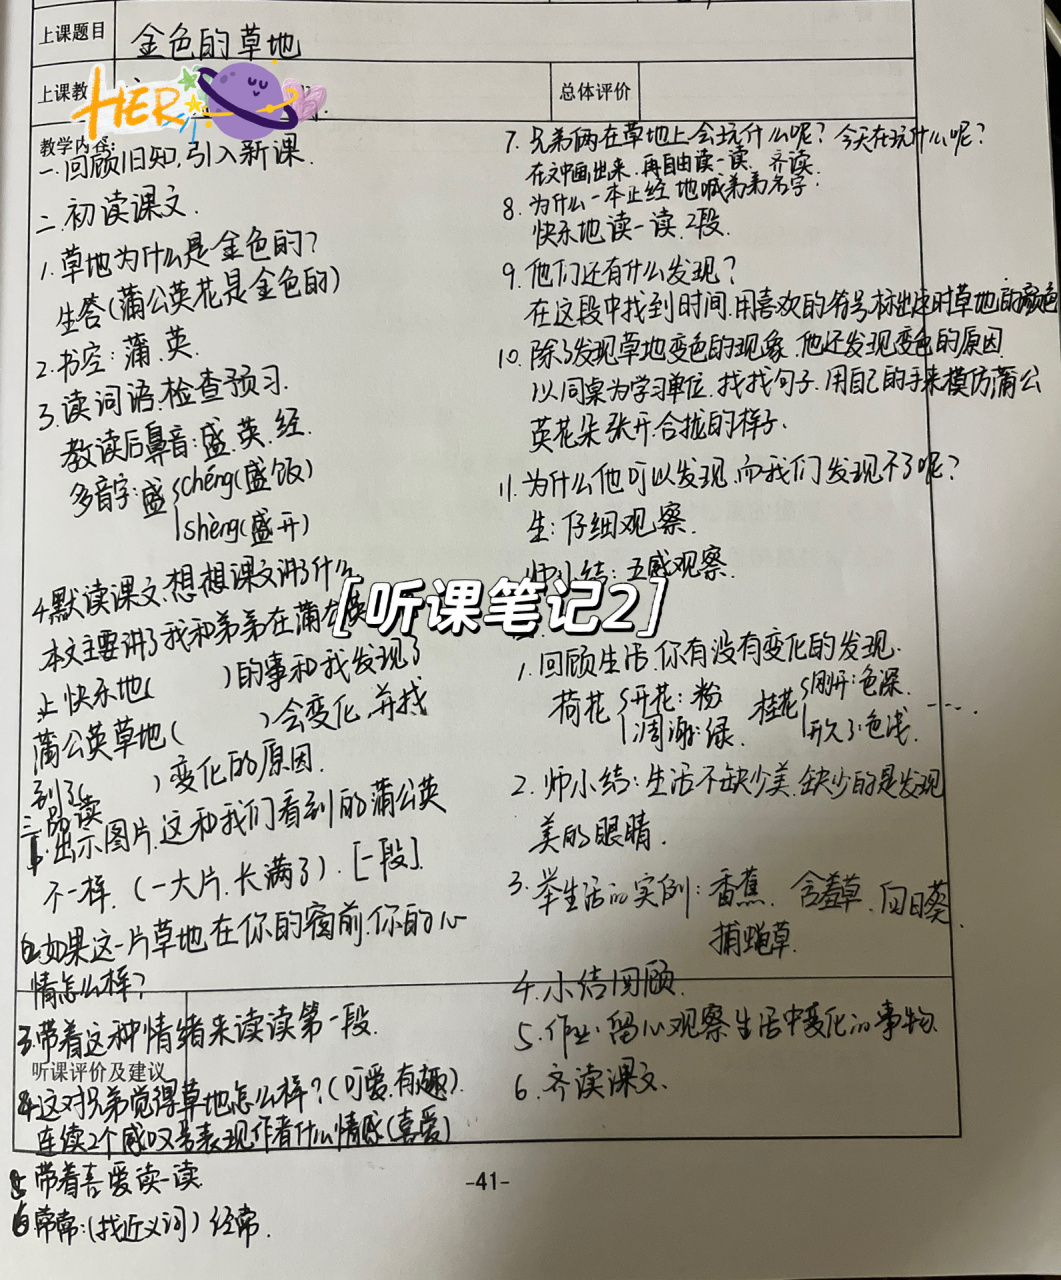 上课题目 金色的草地
上课教
HER
总体评价
教学内容:
一.回顾旧知,引入新课.
二.初读课文.
1.草地为什么是金色的?
生答(蒲公英花是金色的)
2.书空:蒲.英.
3.读词语.检查预习.
教读后鼻音:盛.英.经.
多音字:盛 chéng(盛饭)
shèng(盛开)
4.默读课文.想想课文讲了什么
本文主要讲了我和弟弟在蒲公英
上快乐地( )的事和我发现了
蒲公英草地( )会变化.并找
到了( )变化的原因.
三.品读
1.出示图片.这和我们看到的蒲公英
不一样.(一大片.长满了).[一段].
2.如果这一片草地在你的窗前.你的心
情怎么样?
3.带着这种情绪来读读第一段.
听课评价及建议
4.这对兄弟觉得草地怎么样?(可爱.有趣).
连续2个感叹号表现作者什么情感(喜爱)
5.带着喜爱读一读.
6.常常:(找近义词)经常.
7.兄弟俩在草地上会玩什么呢?今天在玩什么呢?
在文中画出来.再自由读一读.齐读.
8.为什么一本正经地喊弟弟名字.
快乐地读一读.2段.
9.他们还有什么发现?
在这段中找到时间.用喜欢的符号标出这时草地的颜色
10.除了发现草地变色的现象.他还发现变色的原因.
以同桌为学习单位.找找句子.用自己的手来模仿蒲公
英花朵张开.合拢的样子.
11.为什么他可以发现.而我们发现不了呢?
生:仔细观察.
师小结:五感观察.
[听课笔记2]
1.回顾生活.你有没有变化的发现.
荷花 开花:粉 桂花 刚开:色深.
凋谢:绿. 开久了:色浅. ....
2.师小结:生活不缺少美.缺少的是发现
美的眼睛.
3.举生活的实例:香蕉.含羞草.向日葵.
捕蝇草.
4.小结回顾.
5.作业.留心观察生活中变化的事物.
6.齐读课文.
-41-